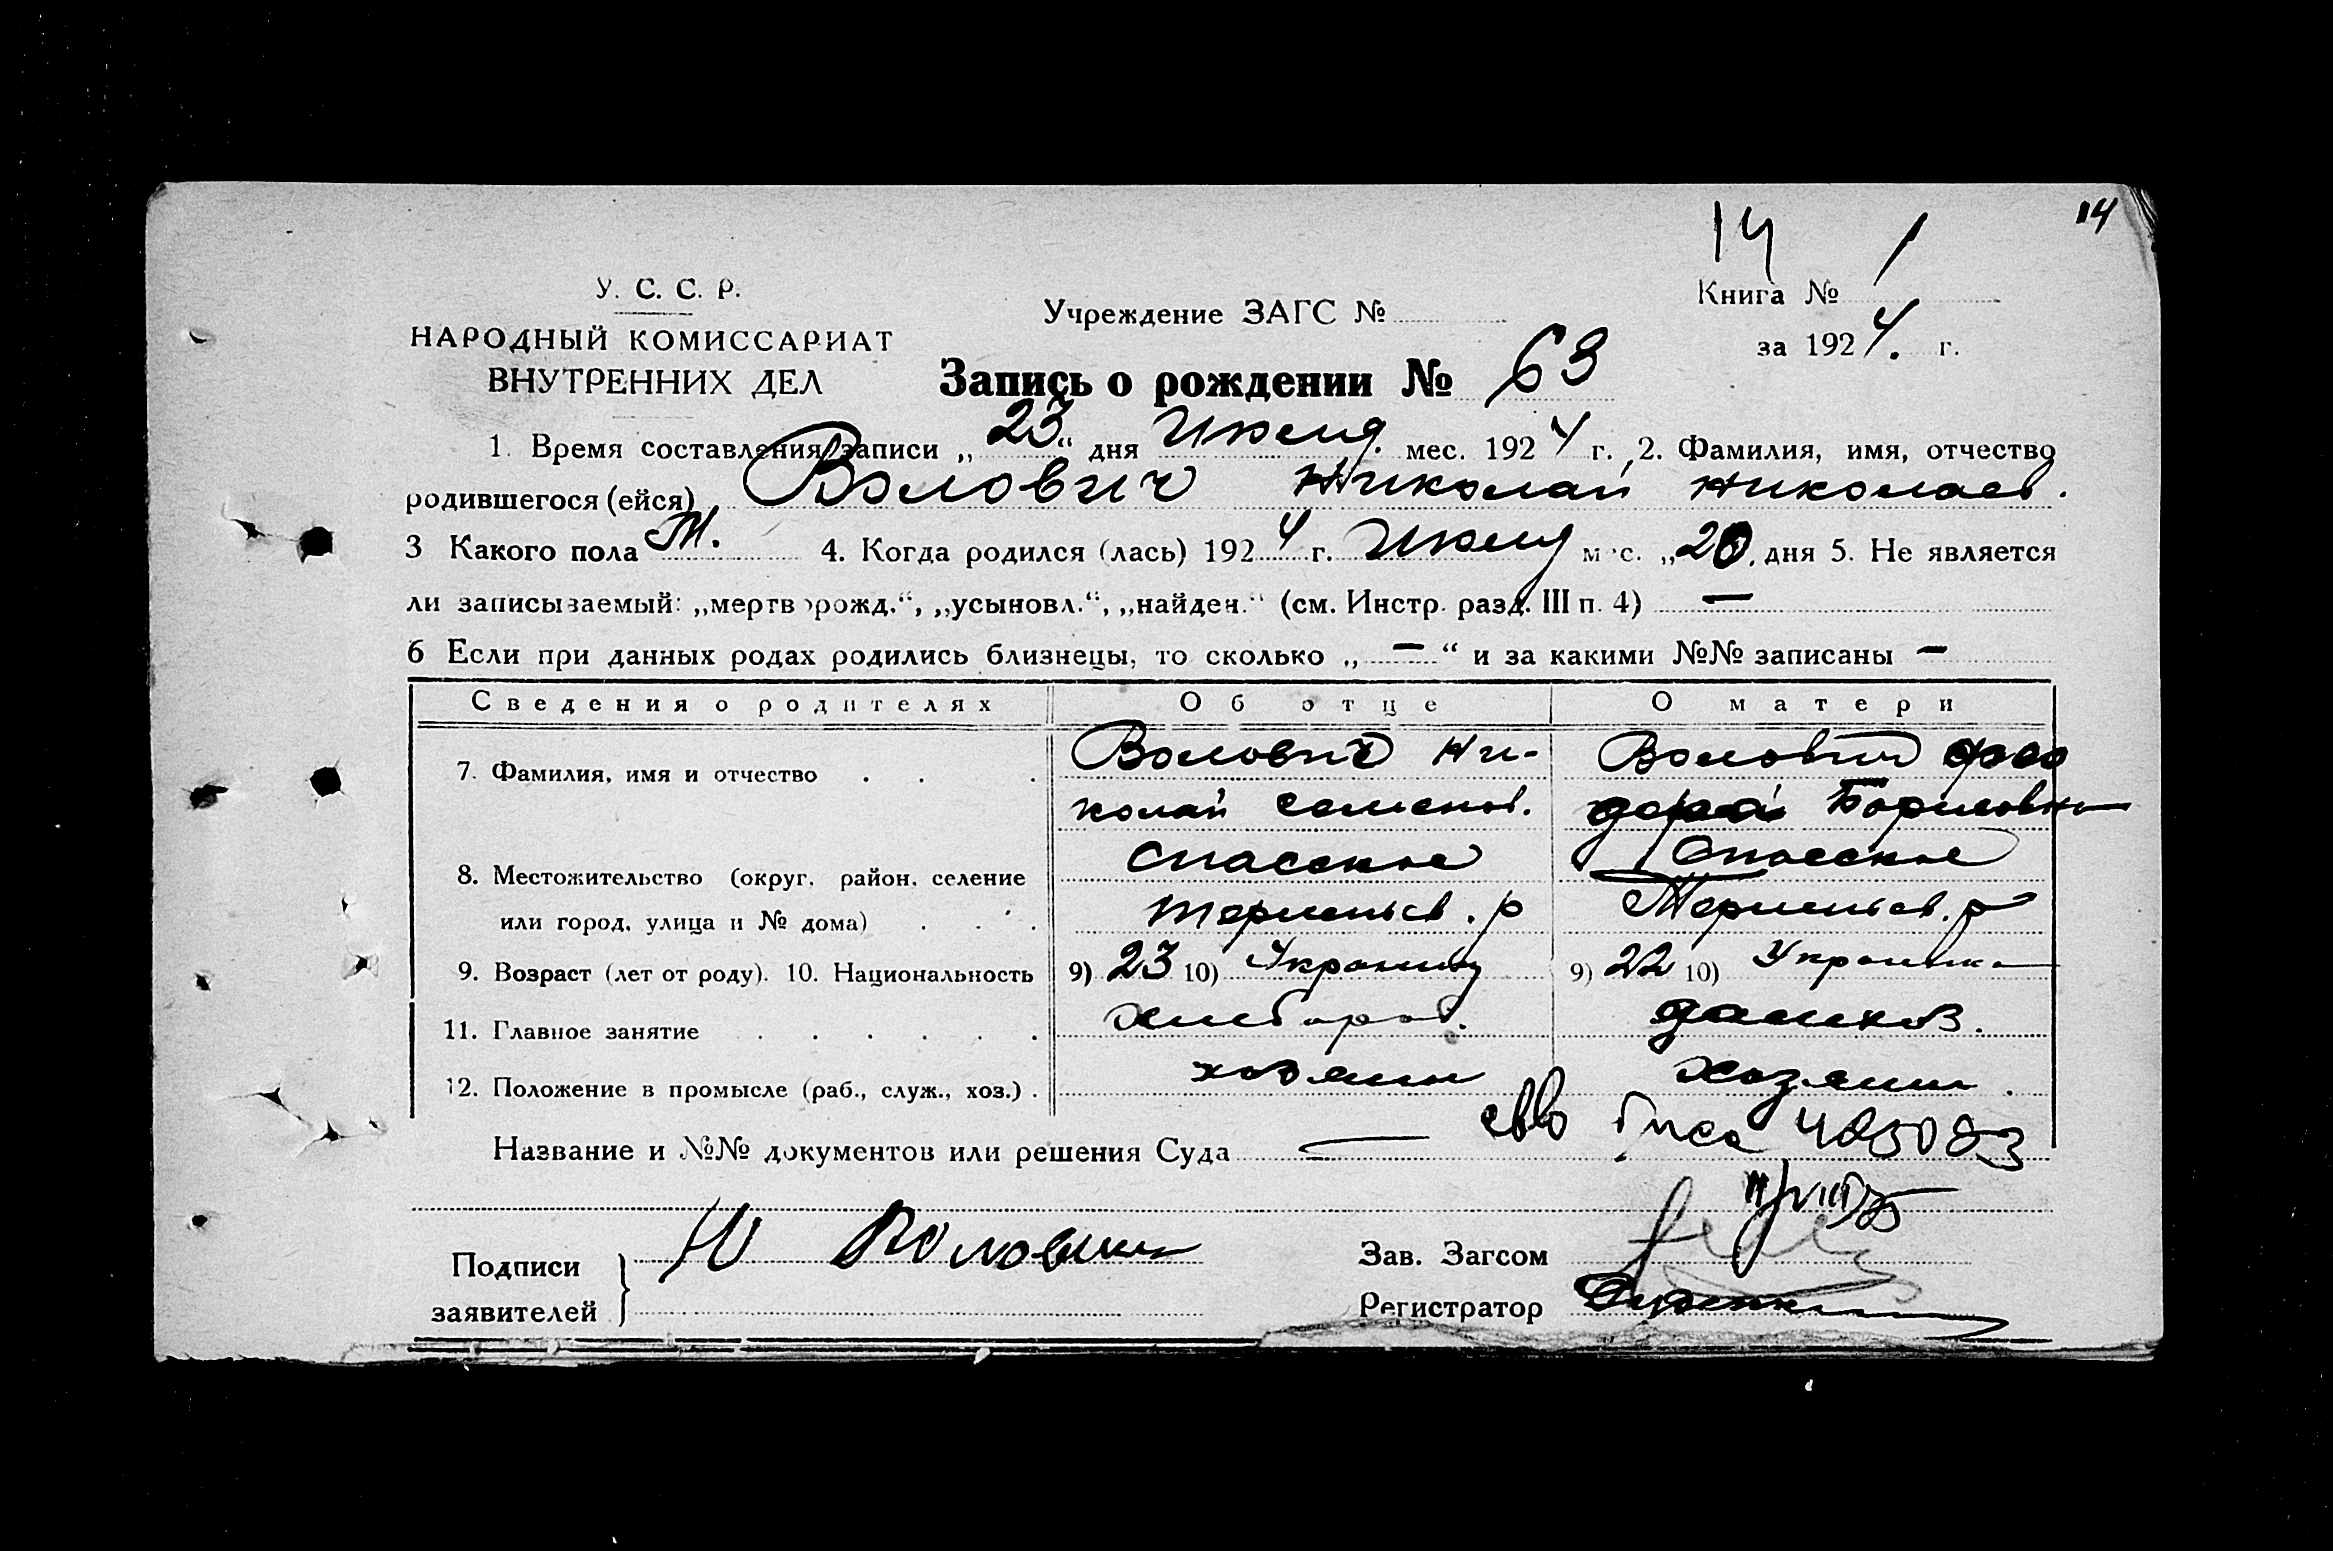 14
14 1
У. С. С. Р.
НАРОДНЫЙ КОМИССАРИАТ
ВНУТРЕННИХ ДЕЛ
Учреждение ЗАГС №
Книга №
за 1924. г.
Запись о рождении № 63
1. Время составления записи „23“ дня Июля мес. 1924 г. 2. Фамилия, имя, отчество
родившегося (ейся) Волович Николай Николаев.
3 Какого пола М. 4. Когда родился (лась) 1924 г. Июля мес. „20. дня 5. Не является
ли записываемый: „мертворожд.“, „усыновл.“, „найден.“ (см. Инстр. разд. III п. 4) —
6 Если при данных родах родились близнецы, то сколько „ — “ и за какими №№ записаны —
Сведения о родителях Об отце О матери
7. Фамилия, имя и отчество . . . Волович Ни- Волович Фео
колай Семенов. дора Борисовна
8. Местожительство (округ, район, селение Спасское Спасское
или город, улица и № дома) . . . р р
9. Возраст (лет от роду). 10. Национальность 9) 23 10) Украинец 9) 22 10) Украинка
11. Главное занятие . . . . . . Хлебороб. домохоз.
12. Положение в промысле (раб., служ., хоз.) . хозяин Хозяин.
Название и №№ документов или решения Суда —
Подписи Н Волович Зав. Загсом
заявителей Регистратор